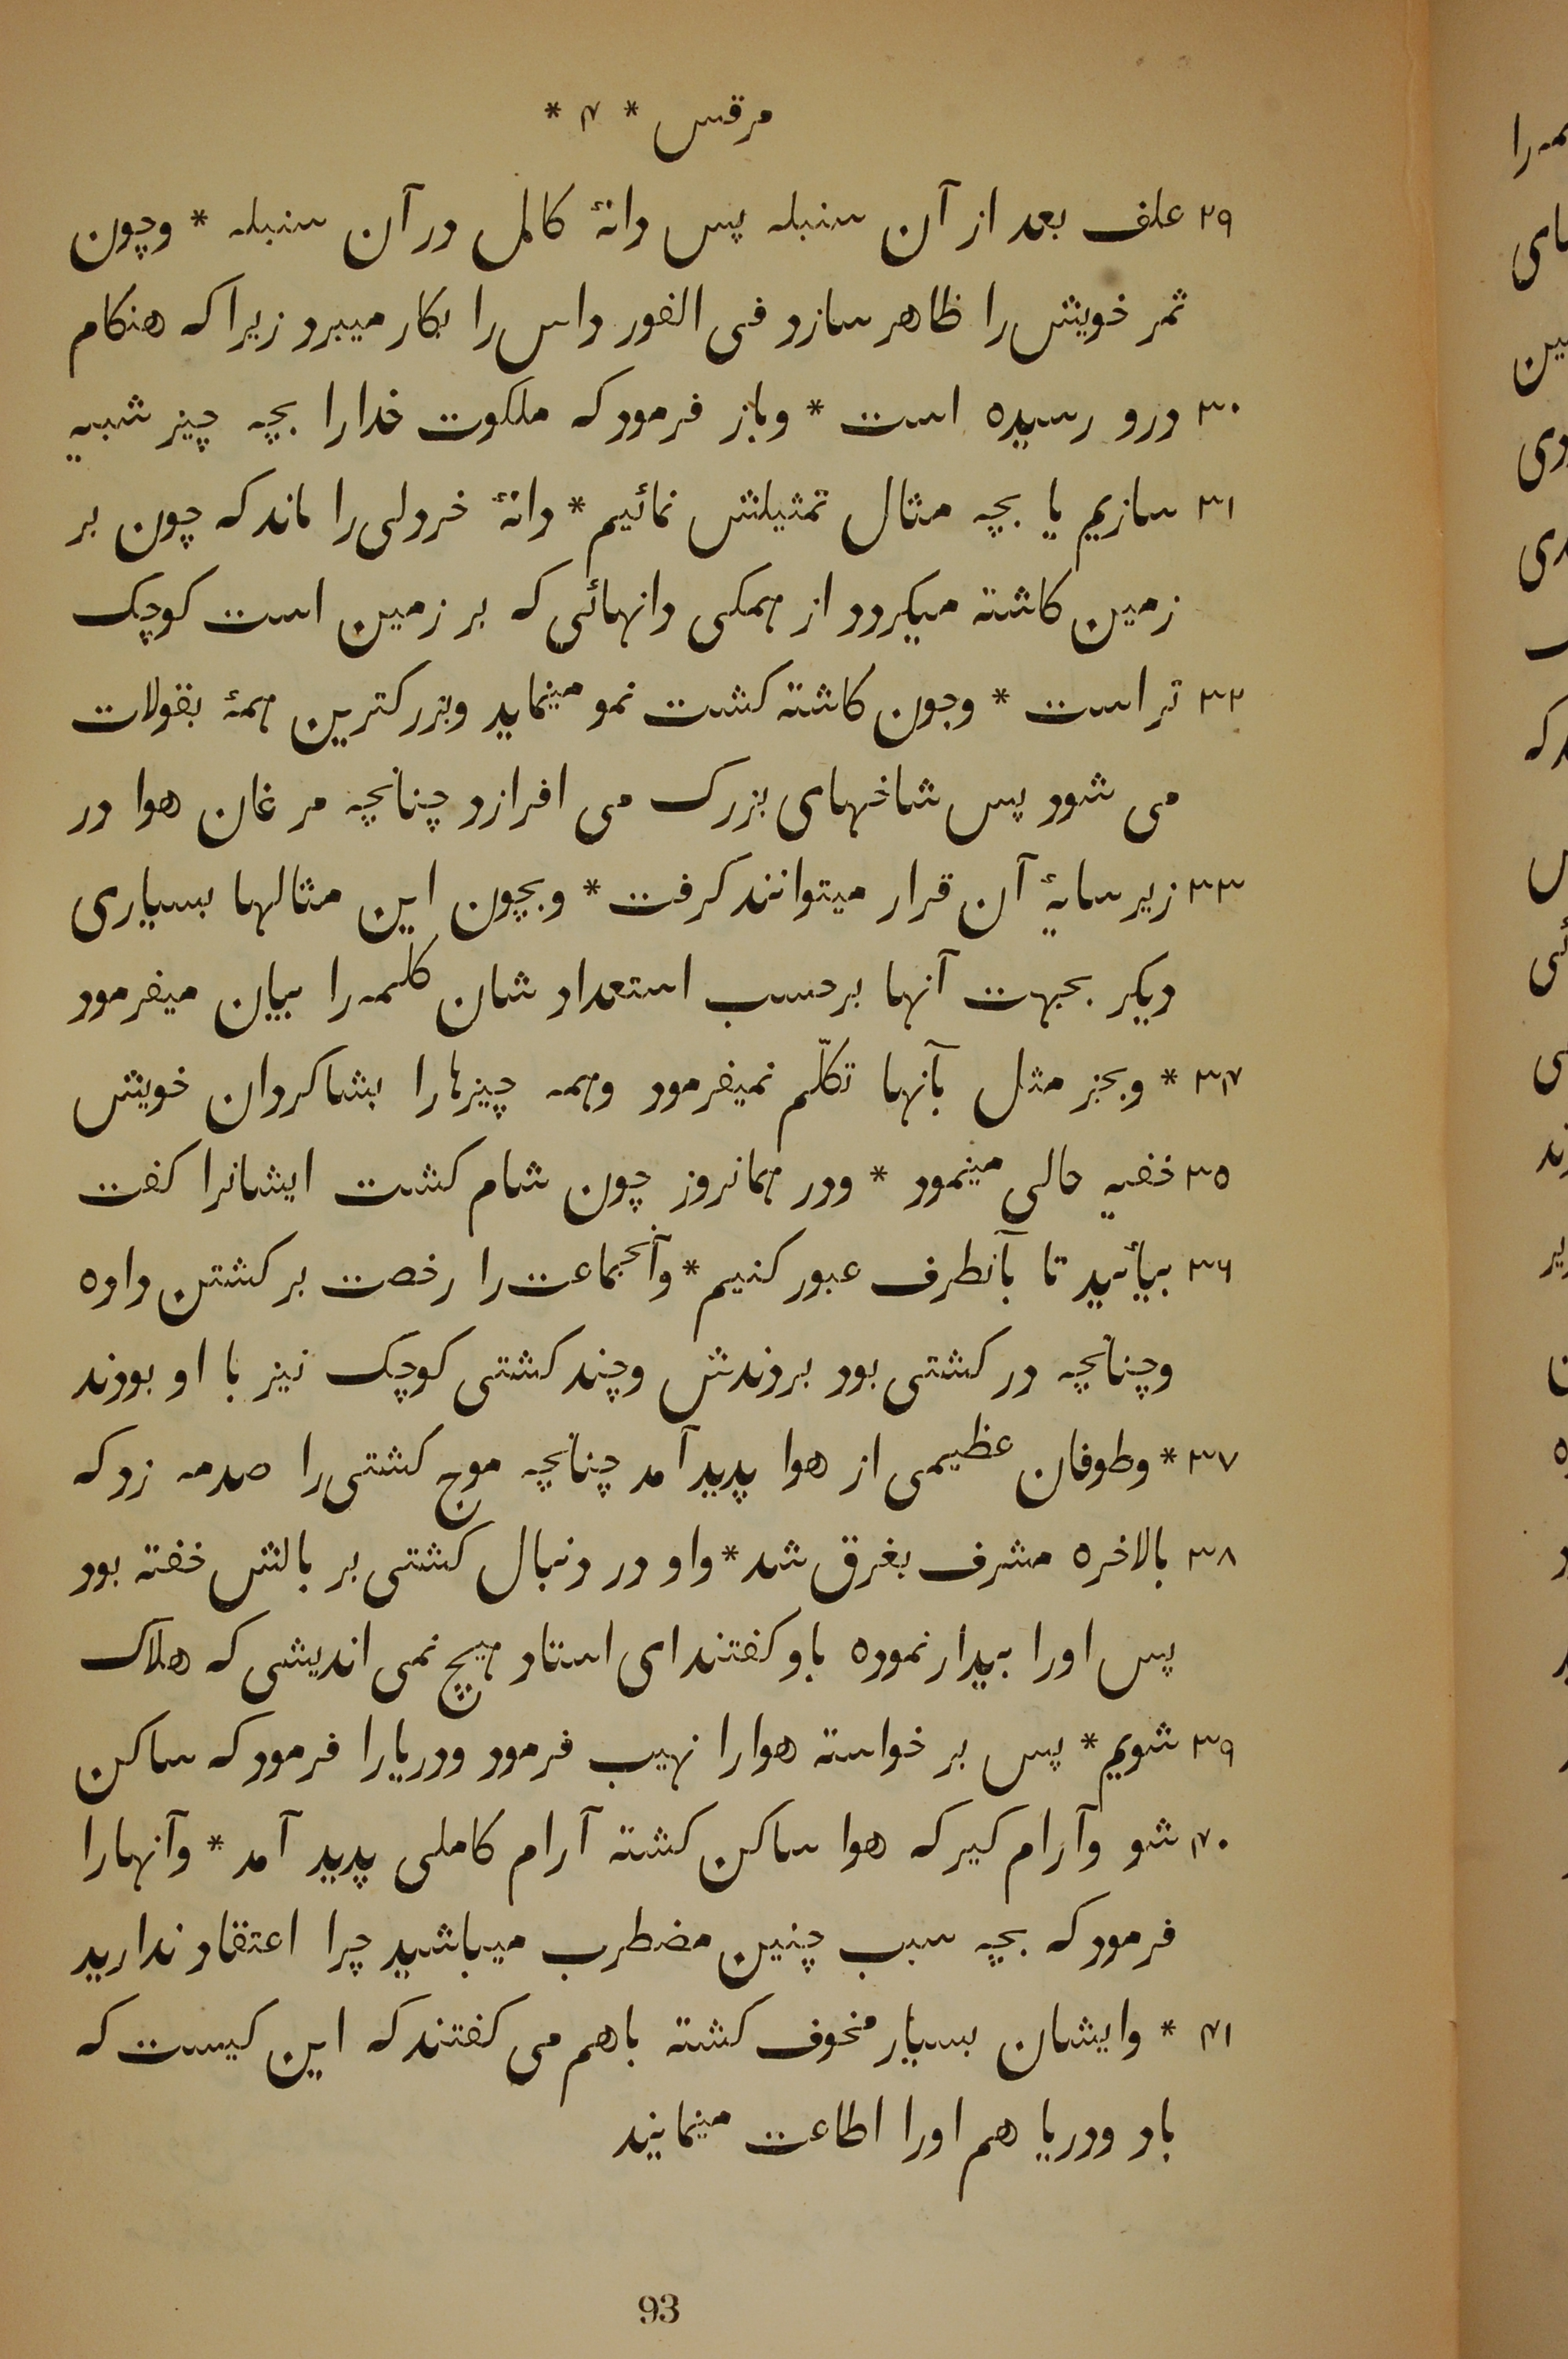 مرقس * ۴ *
۲۹ علف بعد از آن سنبله پس دانهٔ کامل در آن سنبله * وچون
ثمر خویش را ظاهر سازد فی الفور داس را بکار میبرد زیرا که هنکام
۳۰ درو رسیده است * وباز فرمود که ملکوت خدارا بچه چیز شبیه
۳۱ سازیم یا بچه مثال تمثیلش نمائیم * دانهٔ خردلی را ماند که چون بر
زمین کاشته میکردد از همکی دانهائی که بر زمین است کوچک
۳۲ تر است * وچون کاشته کشت نمو مینماید وبزرکترین همهٔ بقولات
می شود پس شاخهای بزرک می افرازد چنانچه مرغان هوا در
۳۳ زیر سایهٔ آن قرار میتوانند کرفت * وبچون این مثالها بسیاری
دیکر بجهت آنها برحسب استعداد شان کلمه را بیان میفرمود
۳۴ * وبجز مثل بآنها تکلّم نمیفرمود وهمه چیزهارا بشاکردان خویش
۳۵ خفیه حالی مینمود * ودر همانروز چون شام کشت ایشانرا کفت
۳۶ بیائید تا بآنطرف عبور کنیم * وآنجماعت را رخصت بر کشتن داده
وچنانچه در کشتی بود بردندش وچند کشتی کوچک نیز با او بودند
۳۷ * وطوفان عظیمی از هوا پدید آمد چنانچه موج کشتی را صدمه زد که
۳۸ بالاخره مشرف بغرق شد * واو در دنبال کشتی بر بالش خفته بود
پس اورا بیدار نموده باو کفتند ای استاد هیچ نمی اندیشی که هلاک
۳۹ شویم * پس بر خواسته هوارا نهیب فرمود ودریارا فرمود که ساکن
۴۰ شو وآرام کیر که هوا ساکن کشته آرام کاملی پدید آمد * وآنهارا
فرمود که بچه سبب چنین مضطرب میباشید چرا اعتقاد ندارید
۴۱ * وایشان بسیار مخوف کشته باهم می کفتند که این کیست که
باد ودریا هم اورا اطاعت مینمایند
93